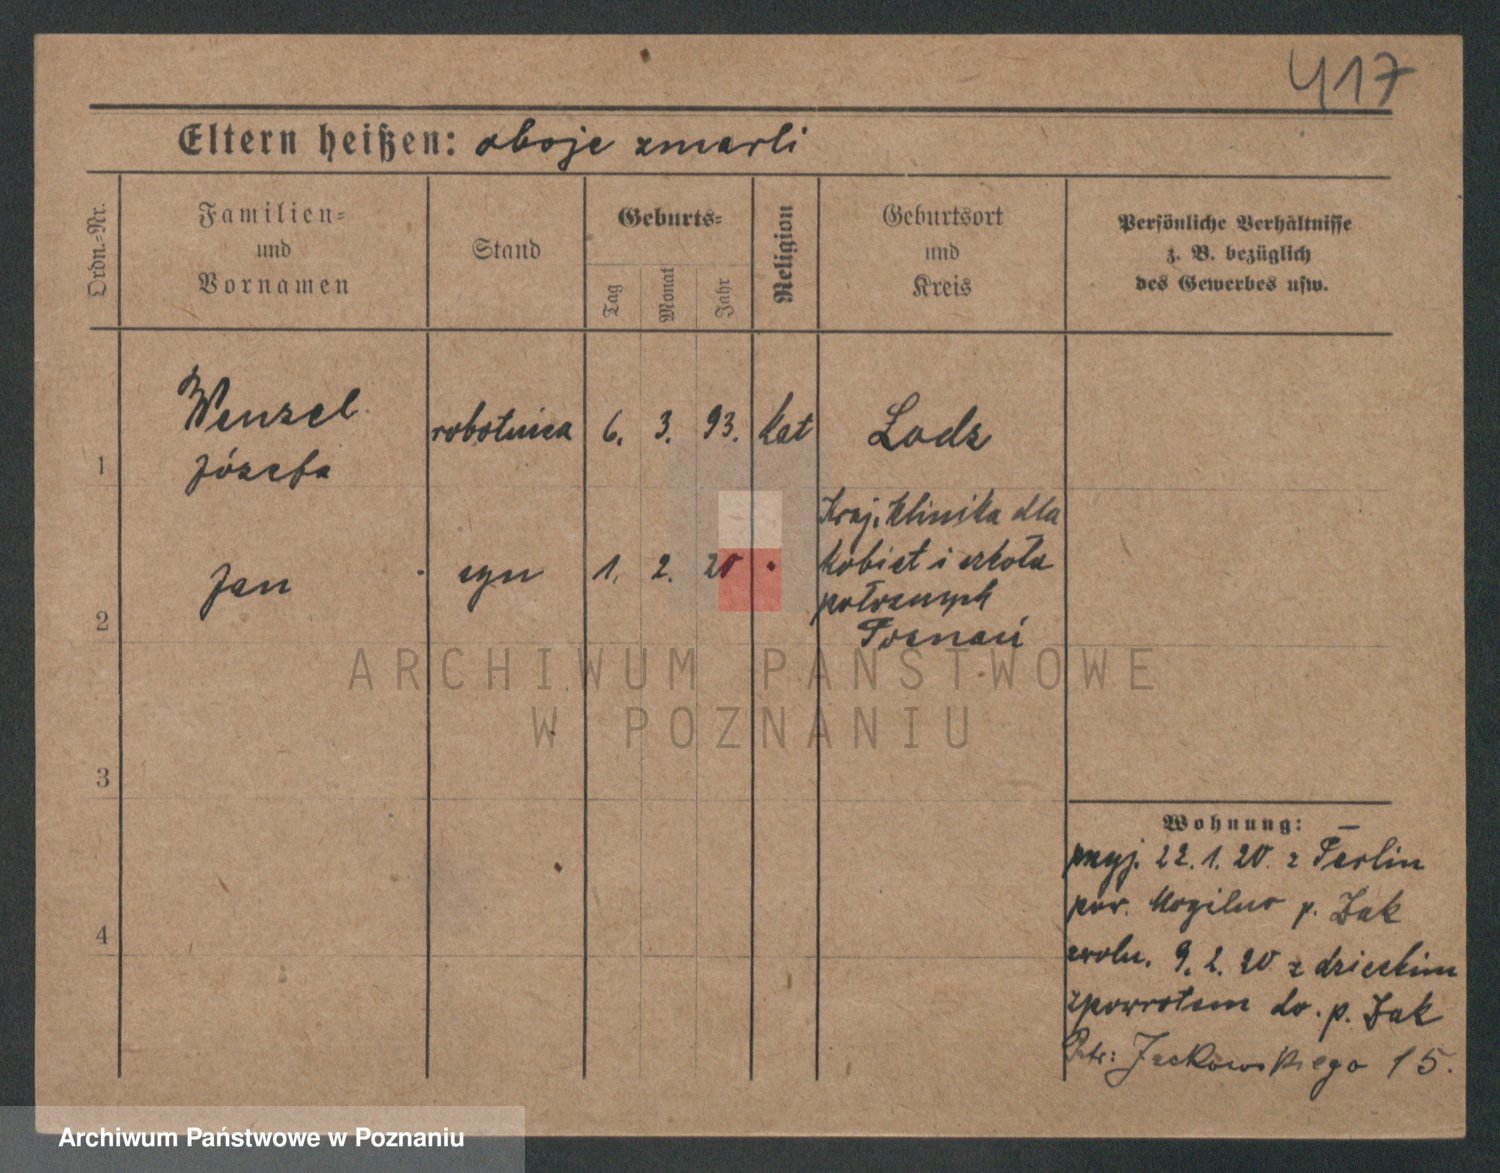 417
Eltern heißen: oboje zmarli
Ordn.=Nr.
Familien=
und
Vornamen
Stand
Geburts=
Tag
Monat
Jahr
Religion
Geburtsort
und
Kreis
Persönliche Verhältnisse
z. B. bezüglich
des Gewerbes usw.
1
Wenzel
Józefa
robotnica
6. 3. 93.
kat
Lodz
2
Jan
syn
1. 2. 20
Kraj. Klinika dla
kobiet i szkoła
położnych
Poznań
3
4
Wohnung: –
przyj. 22.1.20. z
pow. Mogilno p. Żak
zwoln. 9.2.20 z dzieckim
zpowrotem do. p. Żak
Jackowskiego 15.
ARCHIWUM PAŃSTWOWE
W POZNANIU
Archiwum Państwowe w Poznaniu